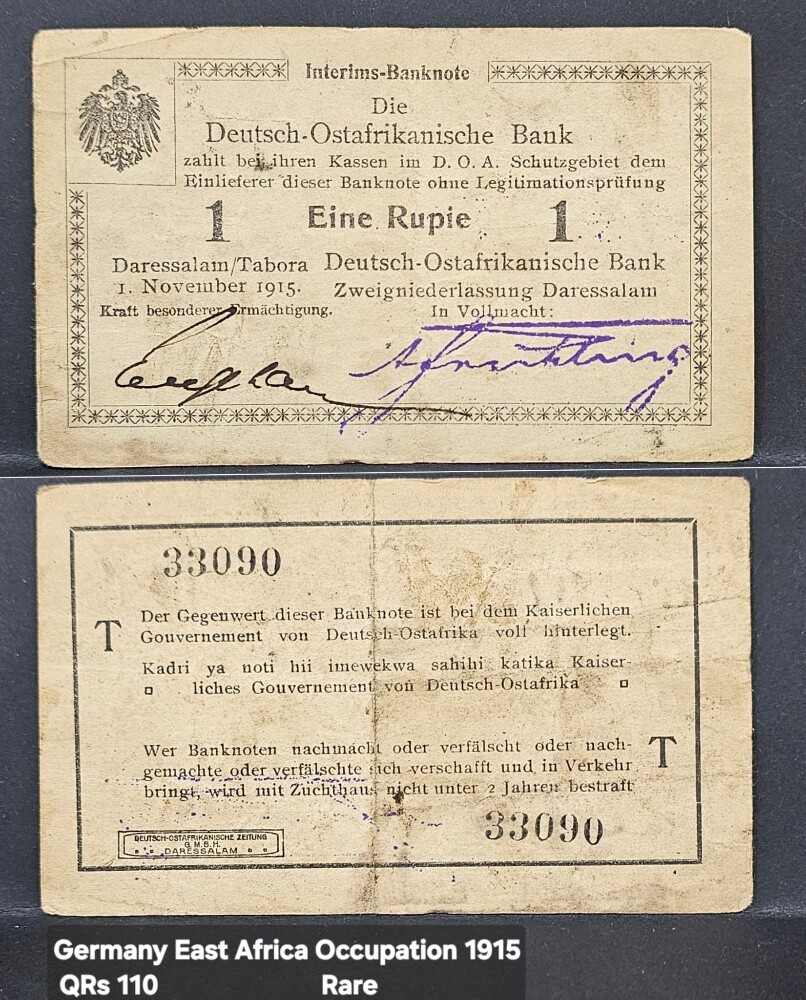 Interims-Banknote
Die
Deutsch-Ostafrikanische Bank
zahlt bei ihren Kassen im D. O. A. Schutzgebiet dem
Einlieferer dieser Banknote ohne Legitimationsprüfung
1 Eine Rupie 1
Daressalam/Tabora
1. November 1915.
Kraft besonderer Ermächtigung.
Deutsch-Ostafrikanische Bank
Zweigniederlassung Daressalam
In Vollmacht:
33090
T
Der Gegenwert dieser Banknote ist bei dem Kaiserlichen
Gouvernement von Deutsch-Ostafrika voll hinterlegt.
Kadri ya noti hii imewekwa sahihi katika Kaiser-
liches Gouvernement von Deutsch-Ostafrika
Wer Banknoten nachmacht oder verfälscht oder nach-
gemachte oder verfälschte sich verschafft und in Verkehr
bringt, wird mit Zuchthaus nicht unter 2 Jahren bestraft
T
33090
DEUTSCH-OSTAFRIKANISCHE ZEITUNG
G.M.B.H.
DARESSALAM
Germany East Africa Occupation 1915
QRs 110 Rare